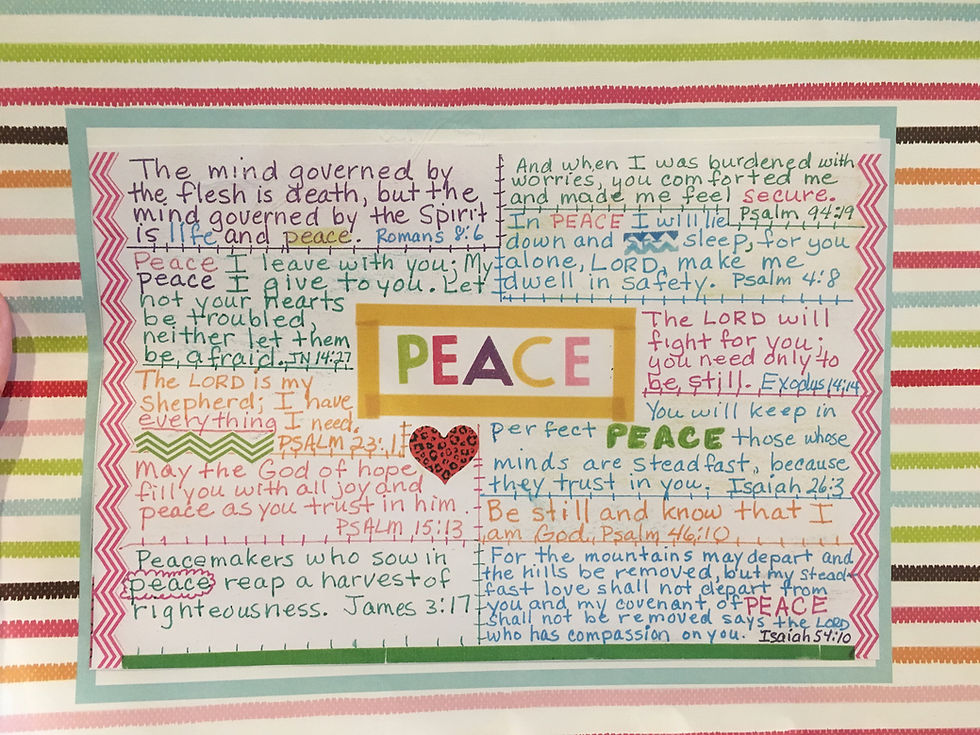 The mind governed by
the flesh is death, but the
mind governed by the Spirit
is life and peace. Romans 8:6
Peace I leave with you; My
peace I give to you. Let
not your hearts
be troubled,
neither let them
be afraid. JN 14:27
The LORD is my
shepherd; I have
everything I need.
PSALM 23:1
May the God of hope
fill you with all joy and
peace as you trust in him.
PSALM 15:13
Peacemakers who sow in
peace reap a harvest of
righteousness. James 3:17
PEACE
And when I was burdened with
worries, you comforted me
and made me feel secure.
Psalm 94:19
In PEACE I will lie
down and sleep, for you
alone, LORD, make me
dwell in safety. Psalm 4:8
The LORD will
fight for you;
you need only to
be still. Exodus 14:14
You will keep in
perfect PEACE those whose
minds are steadfast, because
they trust in you. Isaiah 26:3
Be still and know that I
am God. Psalm 46:10
For the mountains may depart and
the hills be removed, but my stead-
fast love shall not depart from
you and my covenant of PEACE
shall not be removed says the LORD
who has compassion on you. Isaiah 54:10